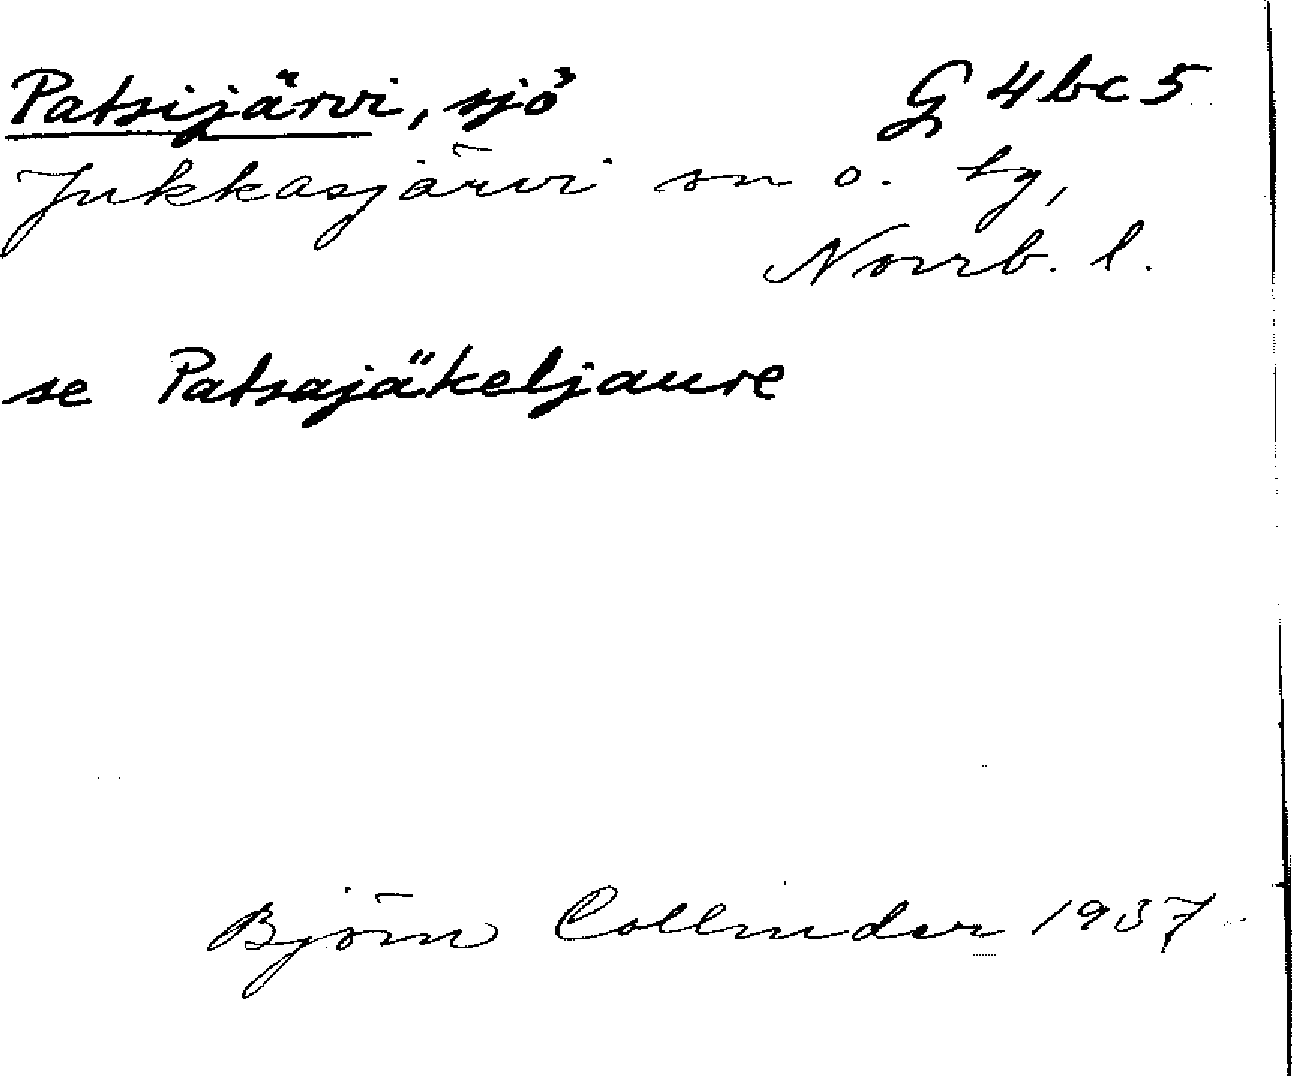 Patsijärvi, sjö G 4bc5
Jukkasjärvi sn o. tg,
Norrb. l.
se Patsajäkeljaure
Björn Collinder 1937